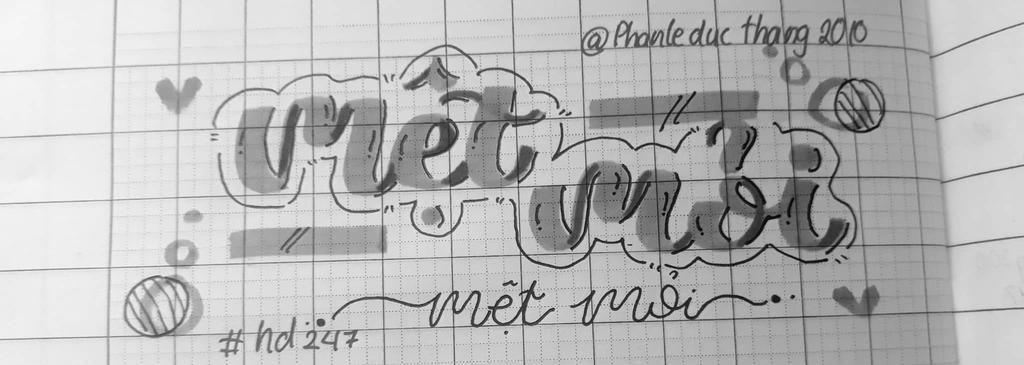 @Phanleduc thang 2010
mệt
mỏi
mệt mỏi
#hd247